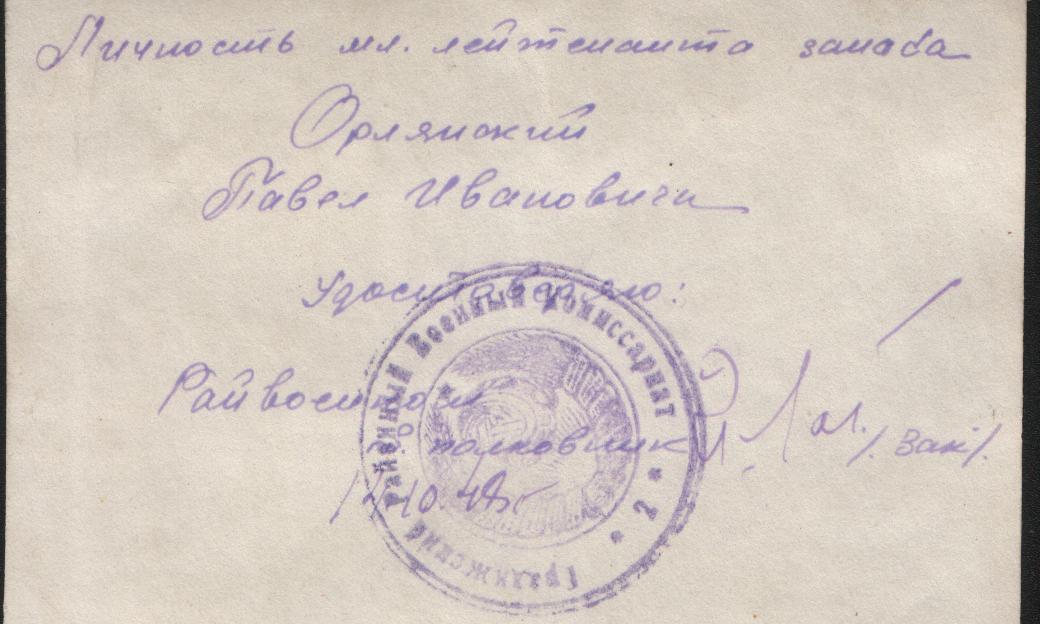 Личность мл. лейтенанта запаса
Орлянский
Павел Иванович
удостоверяю:
Райвоенком
полковник
/Зак/.
Районный Военный Комиссариат
* 2 *